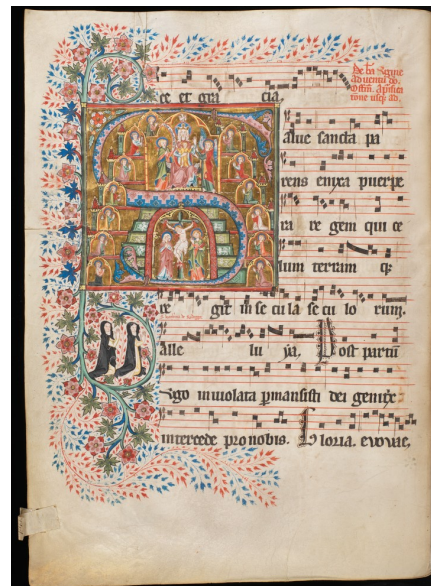 ce et gra cia.
De bta virgine
ad uentu do.
alue sancta pa
rens enixa puerpe
ra re gem qui ce
lum terram q;
re git in se cula se cu lo rum.
alle lu ya. Post partū
virgo inuiolata pmansisti dei genitx
intercede pro nobis. Gloria. evovae.